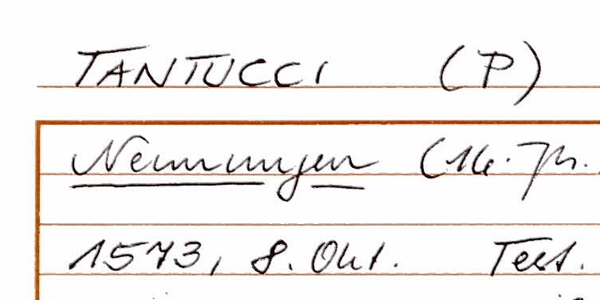 TANTUCCI (P)
Nennungen (16. Jh.
1573, 8. Okt. Test.